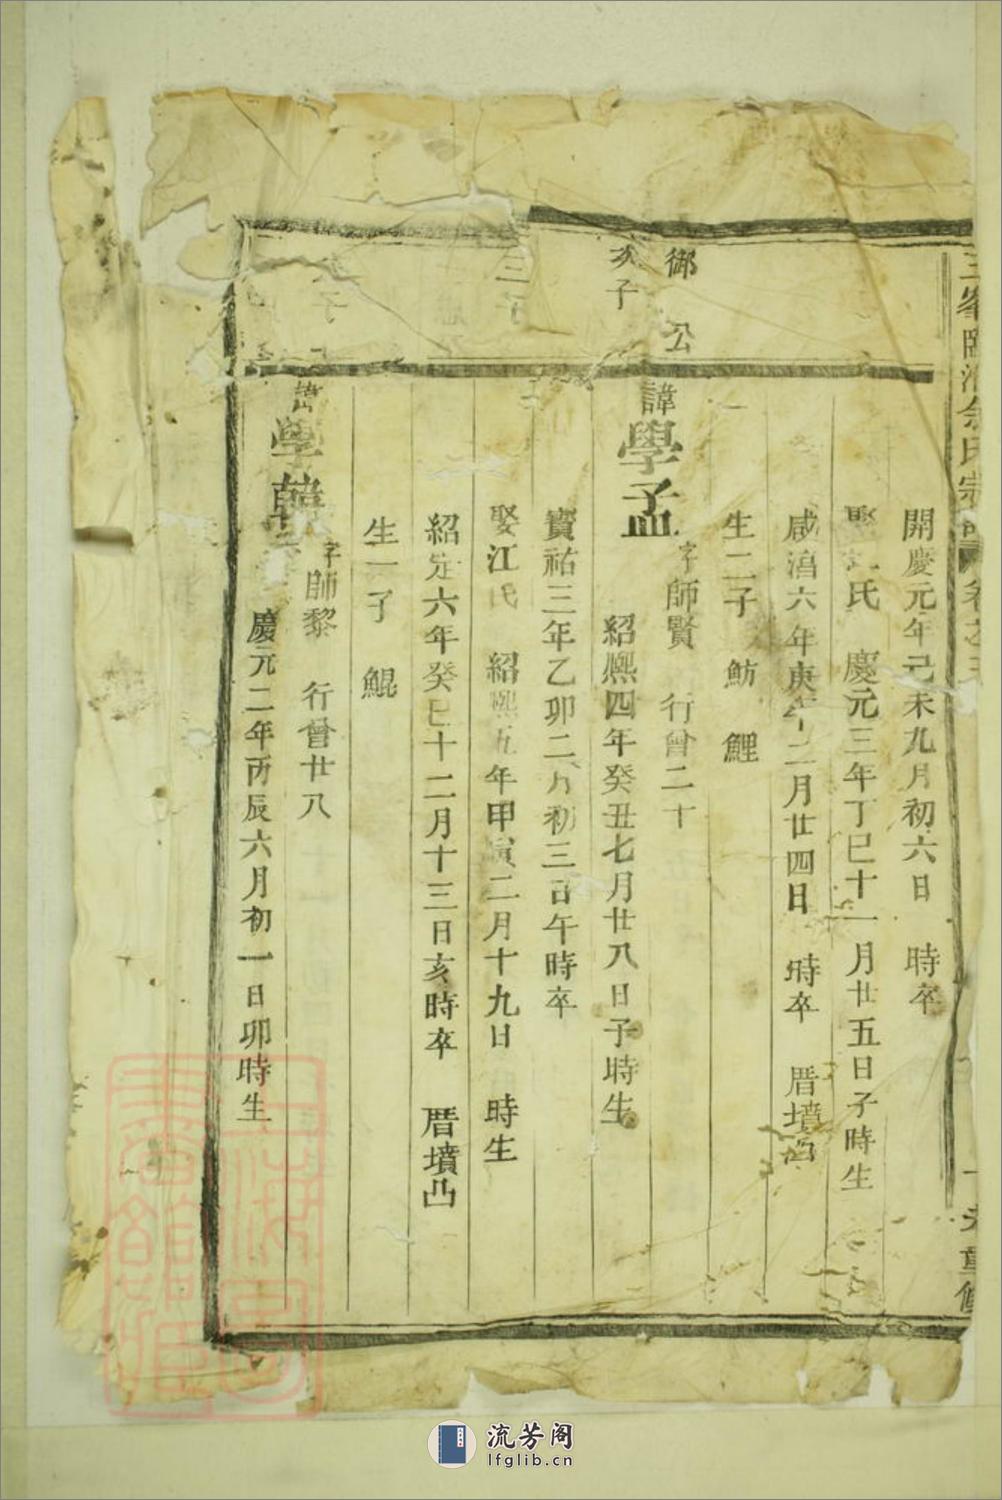 余氏宗
卷之三
重修
開慶元年己未九月初六日 時卒
氏 慶元三年丁巳十一月廿五日子時生
咸淳六年庚午二月廿四日 時卒 厝墳凸
生二子 魴 鯉
御公
次子
諱學孟 字師賢 行曾二十
紹熙四年癸丑七月廿八日子時生
寶祐三年乙卯二月初三日午時卒
娶江氏 紹熙五年甲寅二月十九日 時生
紹定六年癸巳十二月十三日亥時卒 厝墳凸
生一子 鯤
三子
子
諱學韓 字師黎 行曾廿八
慶元二年丙辰六月初一日卯時生
流芳阁
lfglib.cn